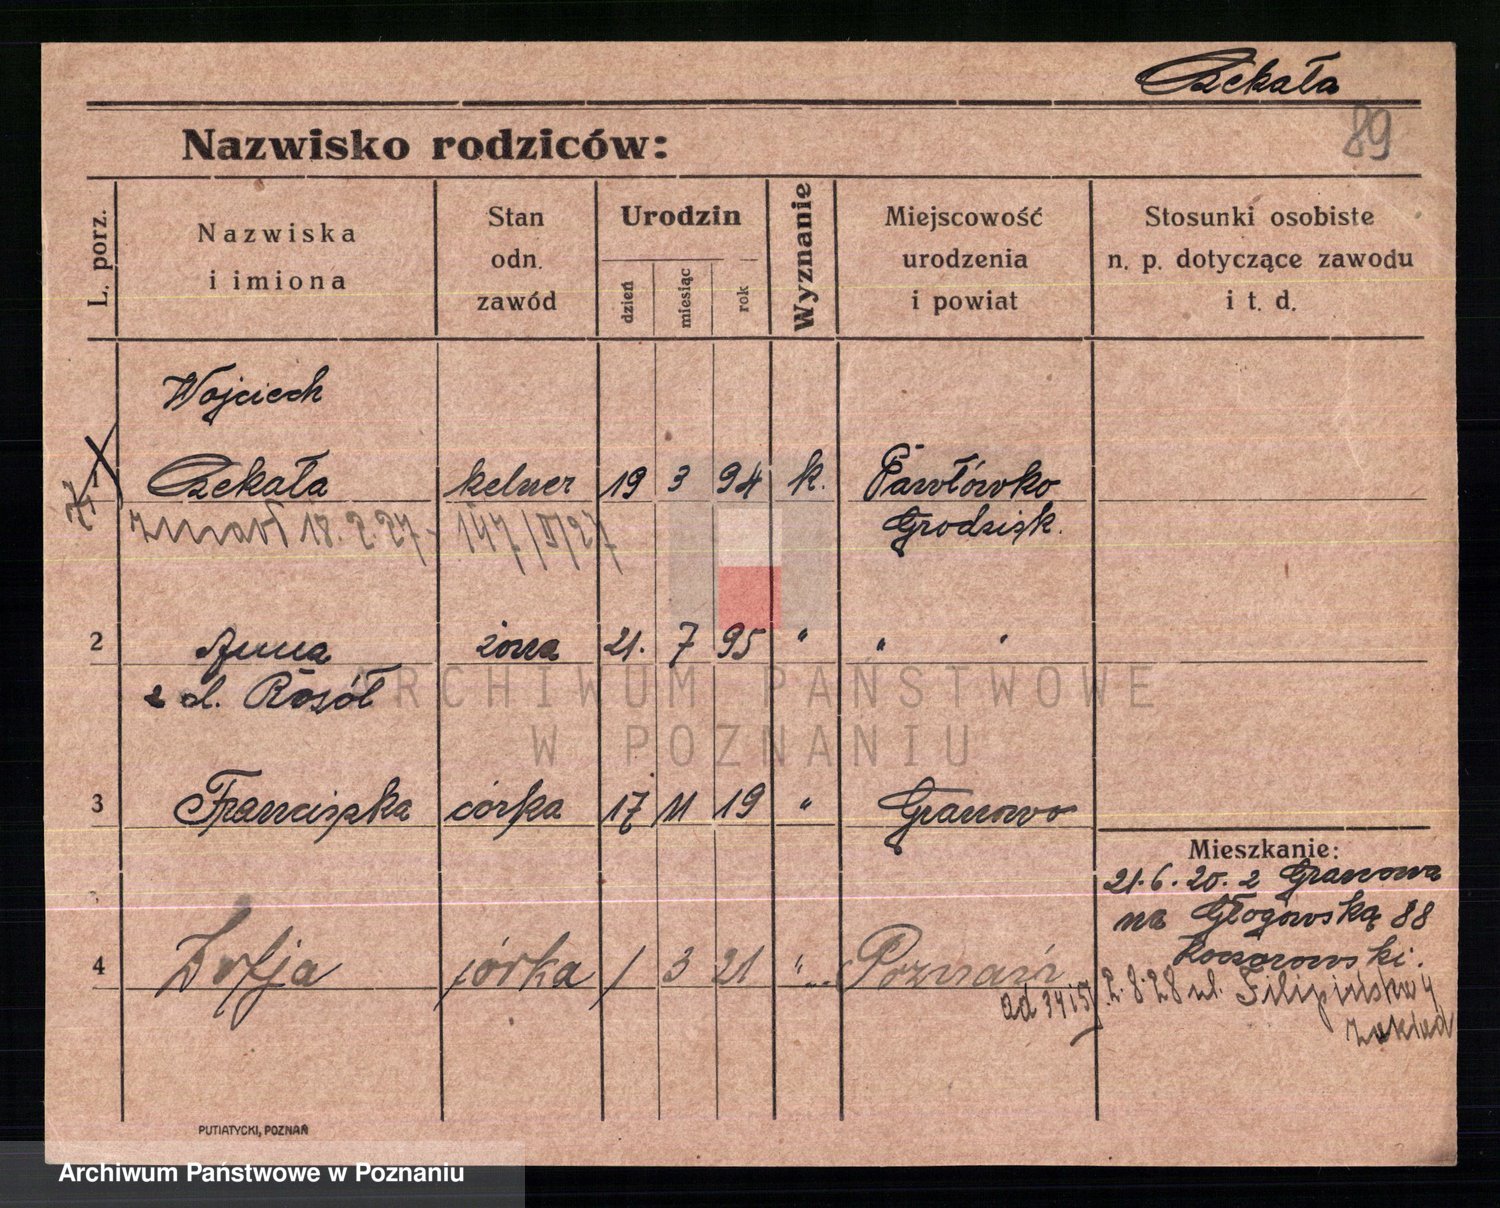 Czekała
89
Nazwisko rodziców:
L. porz.
Nazwiska
i imiona
Stan
odn.
zawód
Urodzin
dzień
miesiąc
rok
Wyznanie
Miejscowość
urodzenia
i powiat
Stosunki osobiste
n. p. dotyczące zawodu
i t. d.
Wojciech
1 Czekała kelner 19 3 94 k. Pawłówko
Grodzisk.
zmarł 18.2.27 - 147/II/27
2 Anna żona 21. 7 95 " " "
z d. Rosół
ARCHIWUM PAŃSTWOWE
W POZNANIU
3 Franciszka córka 17 11 19 " Granowo
Mieszkanie:
21.6.20. z Granowa
na Głogowską 88
4 Zofja córka 1 3 21 " Poznań
2.8.28 ul.
PUTIATYCKI, POZNAŃ
Archiwum Państwowe w Poznaniu